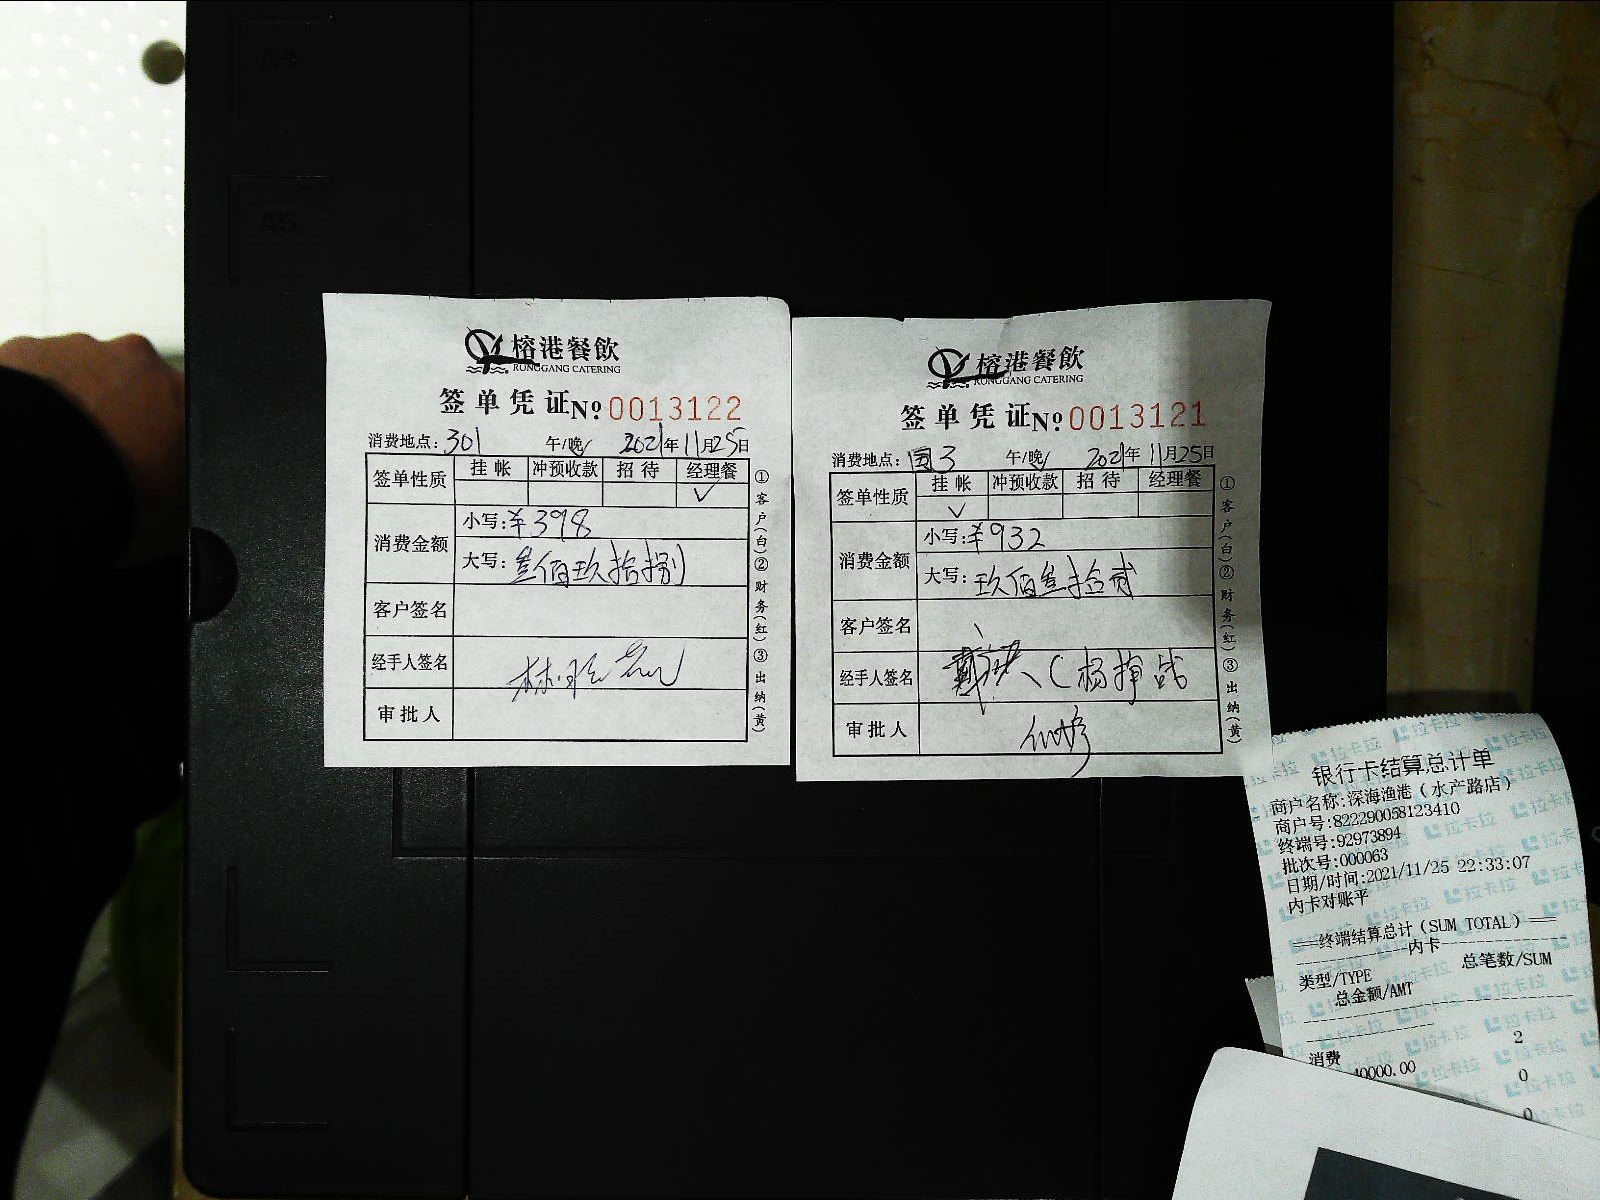 A4
A5
榕港餐飲
RONGGANG CATERING
签单凭证 No 0013122
消费地点：301 午/晚 2021年11月25日
签单性质 挂帐 冲预收款 招待 经理餐
✓
消费金额 小写：¥398
大写：叁佰玖拾捌
客户签名
经手人签名
审批人
①客户(白)②财务(红)③出纳(黄)
榕港餐飲
RONGGANG CATERING
签单凭证 No 0013121
消费地点：国3 午/晚 2021年11月25日
签单性质 挂帐 冲预收款 招待 经理餐
✓
消费金额 小写：¥932
大写：玖佰叁拾贰
客户签名
经手人签名
审批人
①客户(白)②财务(红)③出纳(黄)
银行卡结算总计单
商户名称:深海渔港（水产路店）
商户号:822290058123410
终端号:92973894
批次号:000063
日期/时间:2021/11/25 22:33:07
内卡对账平
===终端结算总计（SUM TOTAL）===
内卡
类型/TYPE 总笔数/SUM
总金额/AMT
消费 2
40000.00
0
0
拉卡拉